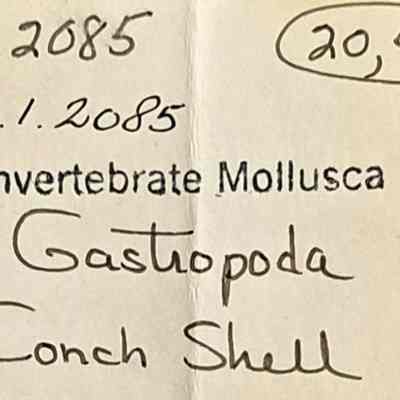 2085 20,
.1.2085
nvertebrate Mollusca
Gastropoda
Conch Shell